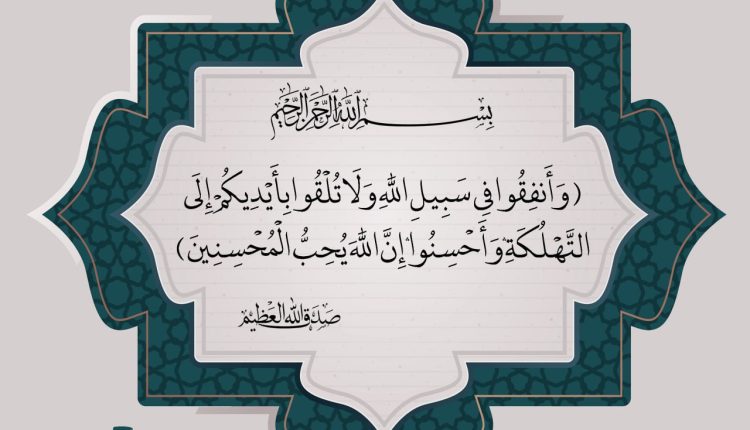 بِسْمِ اللَّهِ الرَّحْمَٰنِ الرَّحِيمِ
(وَأَنفِقُوا فِي سَبِيلِ اللَّهِ وَلَا تُلْقُوا بِأَيْدِيكُمْ إِلَى
التَّهْلُكَةِ ۛ وَأَحْسِنُوا ۛ إِنَّ اللَّهَ يُحِبُّ الْمُحْسِنِينَ)
صَدَقَ اللَّهُ الْعَظِيمُ